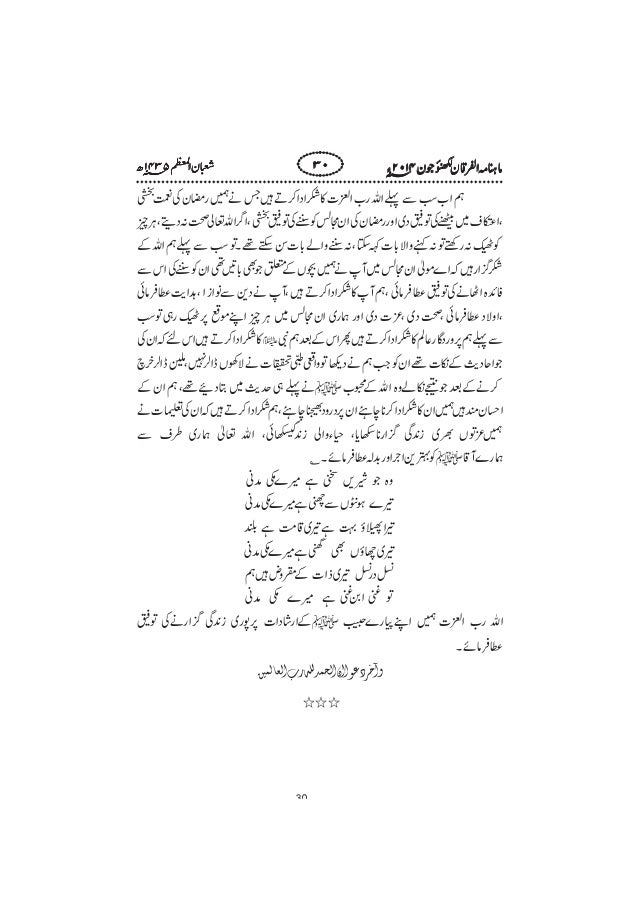 ماہنامہ الفرقان لکھنؤ جون ۲۰۱۴ء
۳۰
شعبان المعظم ۱۴۳۵ھ
ہم اب سب سے پہلے اللہ رب العزت کا شکر ادا کرتے ہیں جس نے ہمیں رمضان کی نعمت بخشی
،اعتکاف میں بیٹھنے کی توفیق دی اور رمضان کی ان مجالس کو سننے کی توفیق بخشی ،اگر اللہ تعالی صحت نہ دیتے ،ہر چیز
کو ٹھیک نہ رکھتے تو نہ کہنے والا بات کہہ سکتا ،نہ سننے والے بات سن سکتے تھے ۔تو سب سے پہلے ہم اللہ کے
شکر گزار ہیں کہ اے مولیٰ ان مجالس میں آپ نے ہمیں بچوں کے متعلق جو بھی باتیں تھی ان کو سننے کی اس سے
فائدہ اٹھانے کی توفیق عطا فرمائی ،ہم آپ کا شکر ادا کرتے ہیں ،آپ نے دین سے نوازا ،ہدایت عطا فرمائی
،اولاد عطا فرمائی ،صحت دی ،عزت دی اور ہماری ان مجالس میں ہر چیز اپنے موقع پر ٹھیک رہی تو سب
سے پہلے ہم پروردگار عالم کا شکر ادا کرتے ہیں پھر اس کے بعد ہم نبی ﷺ کا شکر ادا کرتے ہیں اس لئے کہ ان کی
جو احادیث کے نکات تھے ان کو جب ہم نے دیکھا تو واقعی طبی تحقیقات نے لاکھوں ڈالر نہیں ،بلین ڈالر خرچ
کرنے کے بعد جو نتیجے نکالے وہ اللہ کے محبوب ﷺ نے پہلے ہی حدیث میں بتا دیئے تھے ،ہم ان کے
احسان مند ہیں ہمیں ان کا شکر ادا کرنا چاہئے ان پر درود بھیجنا چاہئے ،ہم شکر ادا کرتے ہیں کہ ان کی تعلیمات نے
ہمیں عزتوں بھری زندگی گزارنا سکھایا، حیاء والی زندگی سکھائی، اللہ تعالیٰ ہماری طرف سے
ہمارے آقا ﷺ کو بہترین اجر اور بدلہ عطا فرمائے ۔
وہ جو شیریں سخنی ہے میرے مکی مدنی
تیرے ہونٹوں سے چھنی ہے میرے مکی مدنی
تیرا پھیلاؤ بہت ہے تیری قامت ہے بلند
تیری چھاؤں بھی گھنی ہے میرے مکی مدنی
نسل در نسل تیری ذات کے مقروض ہیں ہم
تو غنی ابن غنی ہے میرے مکی مدنی
اللہ رب العزت ہمیں اپنے پیارے حبیب ﷺ کے ارشادات پر پوری زندگی گزارنے کی توفیق
عطا فرمائے ۔
وآخر دعوانا ان الحمد للہ رب العالمین
☆☆☆
30